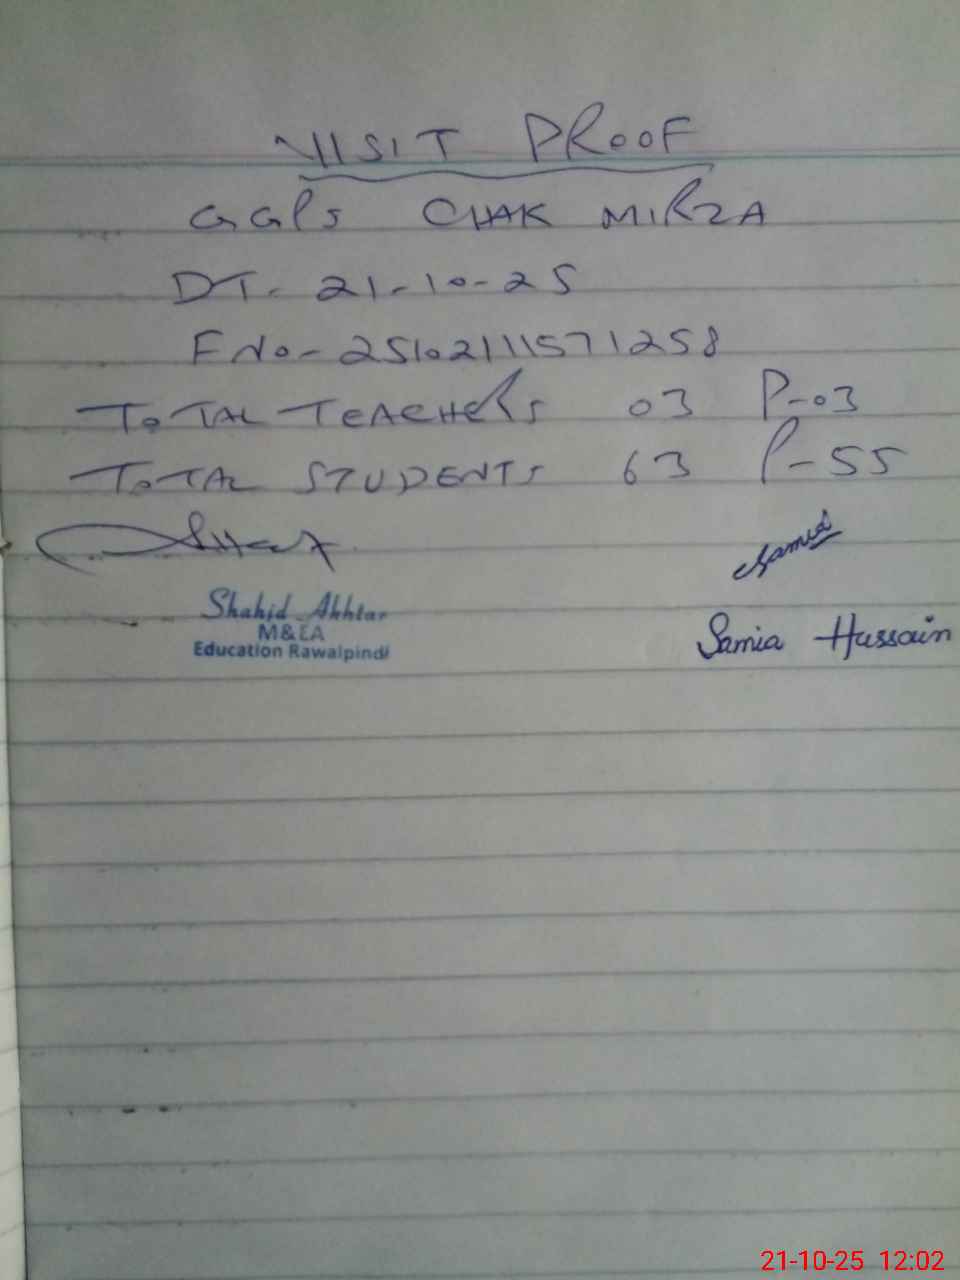 VISIT PROOF
GGPS CHAK MIRZA
DT- 21-10-25
F No- 25102111571258
TOTAL TEACHERS 03 P-03
TOTAL STUDENTS 63 P-55
Samia
Shahid Akhtar
M&EA
Education Rawalpindi
Samia Hussain
21-10-25 12:02